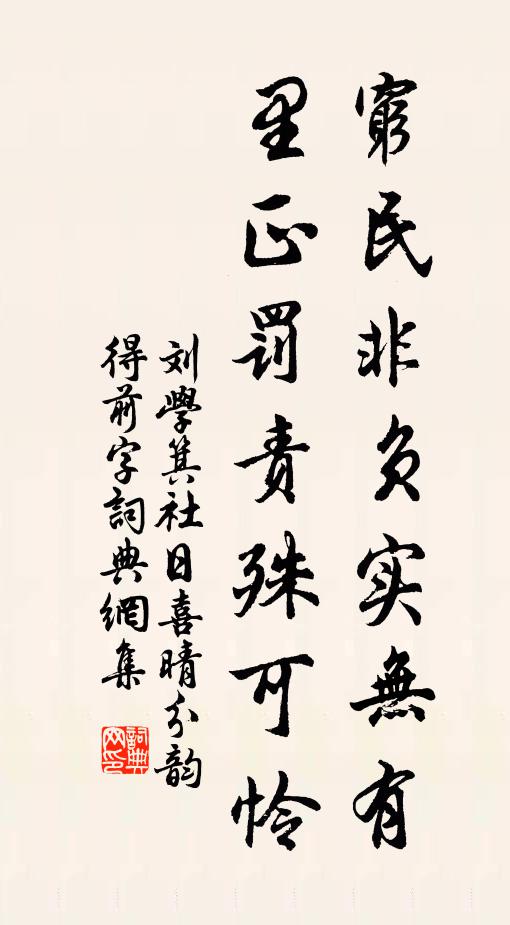 窮民非负实無有
里正罰责殊可怜
刘學箕社日喜晴分韵
得前字詞典網集
詞典网印